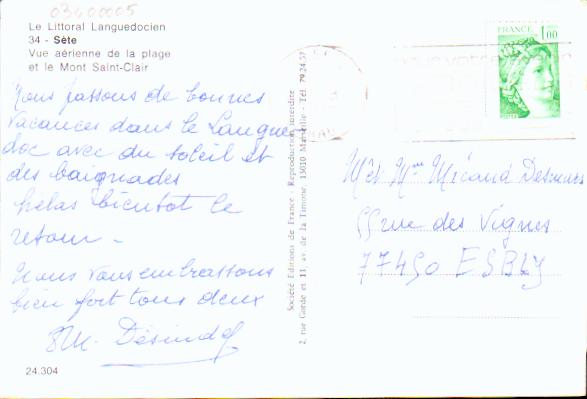 03400005
Le Littoral Languedocien
34 - Sète
Vue aérienne de la plage
et le Mont Saint-Clair
Nous passons de bonnes
vacances dans le Langue
doc avec du soleil et
des baignades
hélas bientot le
retour -
Nous vous embrassons
bien fort tous deux
24.304
Société Editions de France - Reproduction interdite
2, rue Gorde et 11, av. de la Timone, 13010 Marseille - Tél. 79.24.57
FRANCE 1,00
Mr et Mme
55 rue des Vignes
77450 ESBLY